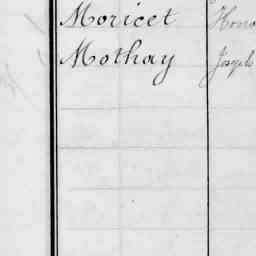 Moricet Hono
Mothay Joseph